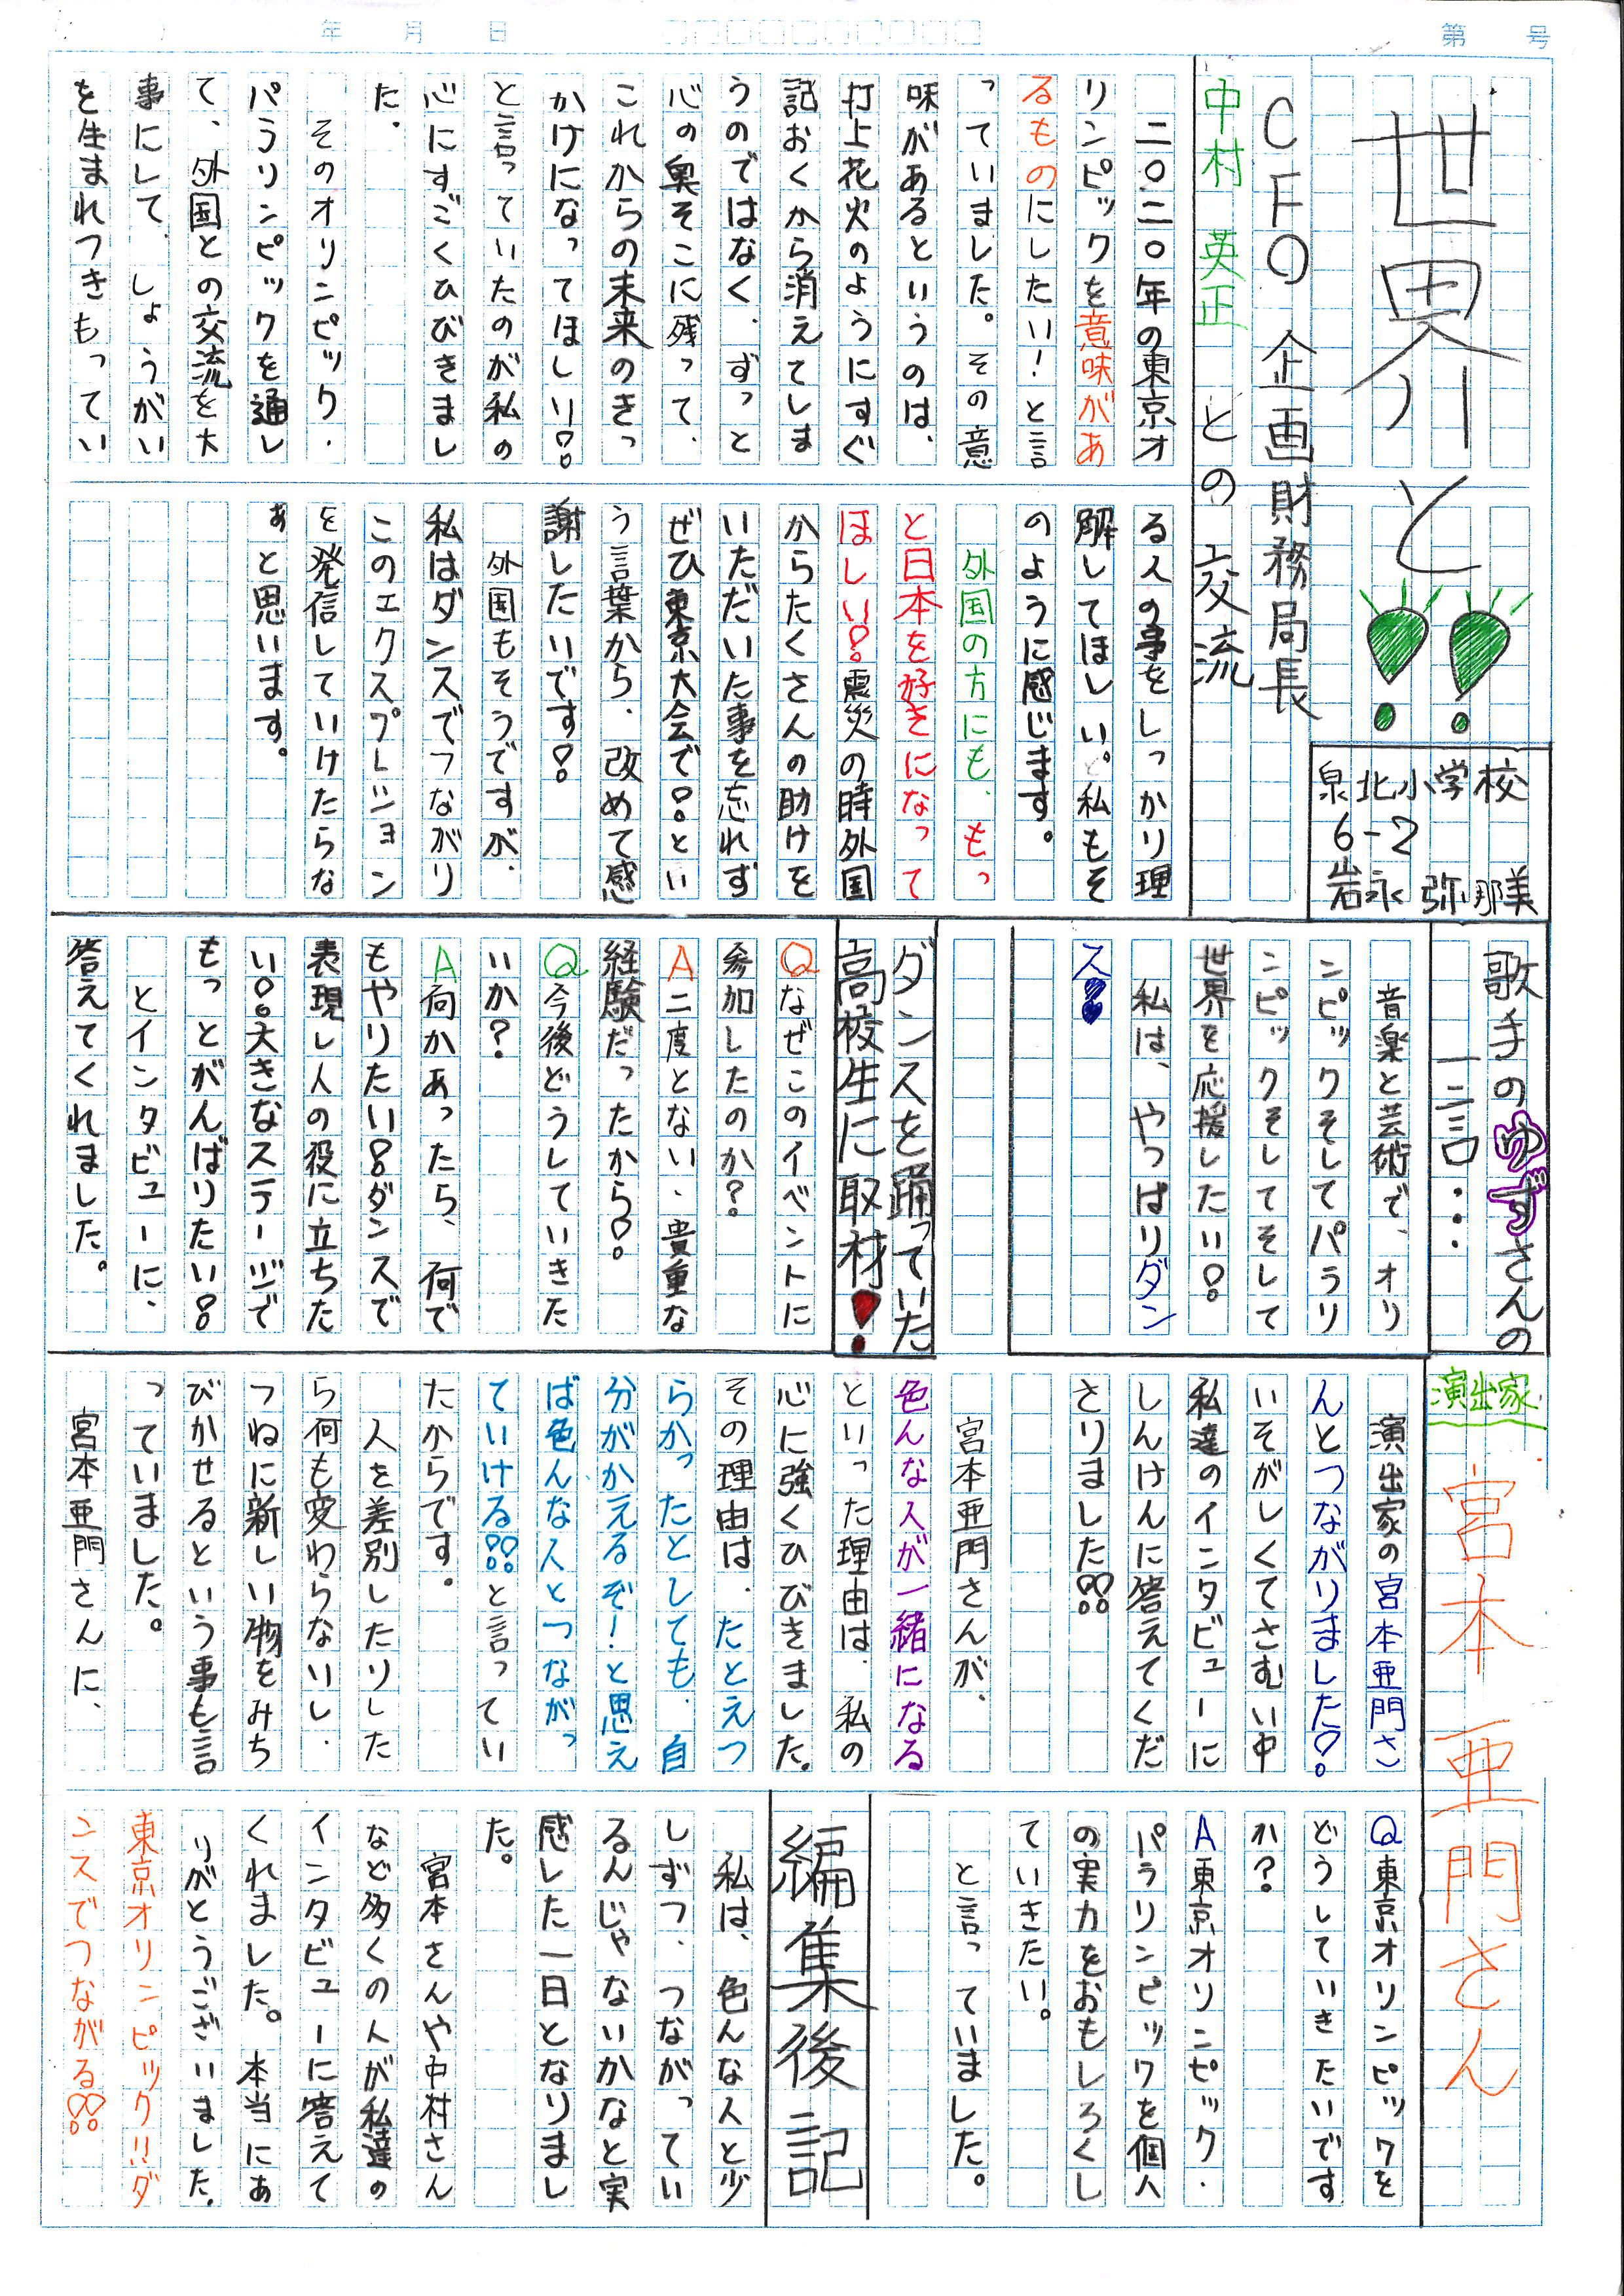 第　号
年　月　日
世界と!!
CFO 企画財務局長
中村 英正 との交流
泉北小学校
6-2
岩永 弥那美
二〇二〇年の東京オ
リンピックを意味があ
るものにしたい!と言
っていました。その意
味があるというのは、
打上花火のようにすぐ
記おくから消えてしま
うのではなく、ずっと
心の奥そこに残って、
これからの未来のきっ
かけになってほしい!
と言っていたのが私の
心にすごくひびきまし
た。
そのオリンピック・
パラリンピックを通し
て、外国との交流を大
事にして、しょうがい
を生まれつきもってい
る人の事をしっかり理
解してほしい。私もそ
のように感じます。
外国の方にも、もっ
と日本を好きになって
ほしい!震災の時外国
からたくさんの助けを
いただいた事を忘れず
ぜひ東京大会で!とい
う言葉から、改めて感
謝したいです!
外国もそうですが、
私はダンスでつながり
このエクスプレション
を発信していけたらな
ぁと思います。
歌手のゆずさんの
一言...
音楽と芸術で、オリ
ンピックそしてパラリ
ンピックそしてそして
世界を応援したい!
私は、やっぱりダン
ス!
ダンスを踊っていた
高校生に取材!
Qなぜこのイベントに
参加したのか?
A二度とない、貴重な
経験だったから!
Q今後どうしていきた
いか?
A何かあったら、何で
もやりたい!ダンスで
表現し人の役に立ちた
い!大きなステージで
もっとがんばりたい!
とインタビューに、
答えてくれました。
演出家
宮本 亜門さん
演出家の宮本亜門さ
んとつながりました!
いそがしくてさむい中
私達のインタビューに
しんけんに答えてくだ
さりました!!
宮本亜門さんが、
色んな人が一緒になる
といった理由は、私の
心に強くひびきました。
その理由は、たとえつ
らかったとしても、自
分がかえるぞ!と思え
ば色んな人とつながっ
ていける!!と言ってい
たからです。
人を差別したりした
ら何も変わらないし、
つねに新しい物をみち
びかせるという事も言
っていました。
宮本亜門さんに、
Q東京オリンピックを
どうしていきたいです
か?
A東京オリンピック・
パラリンピックを個人
の実力をおもしろくし
ていきたい。
と言っていました。
編集後記
私は、色んな人と少
しずつ、つながってい
るんじゃないかなと実
感した一日となりまし
た。
宮本さんや中村さん
など多くの人が私達の
インタビューに答えて
くれました。本当にあ
りがとうございました。
東京オリンピック!!ダ
ンスでつながる!!